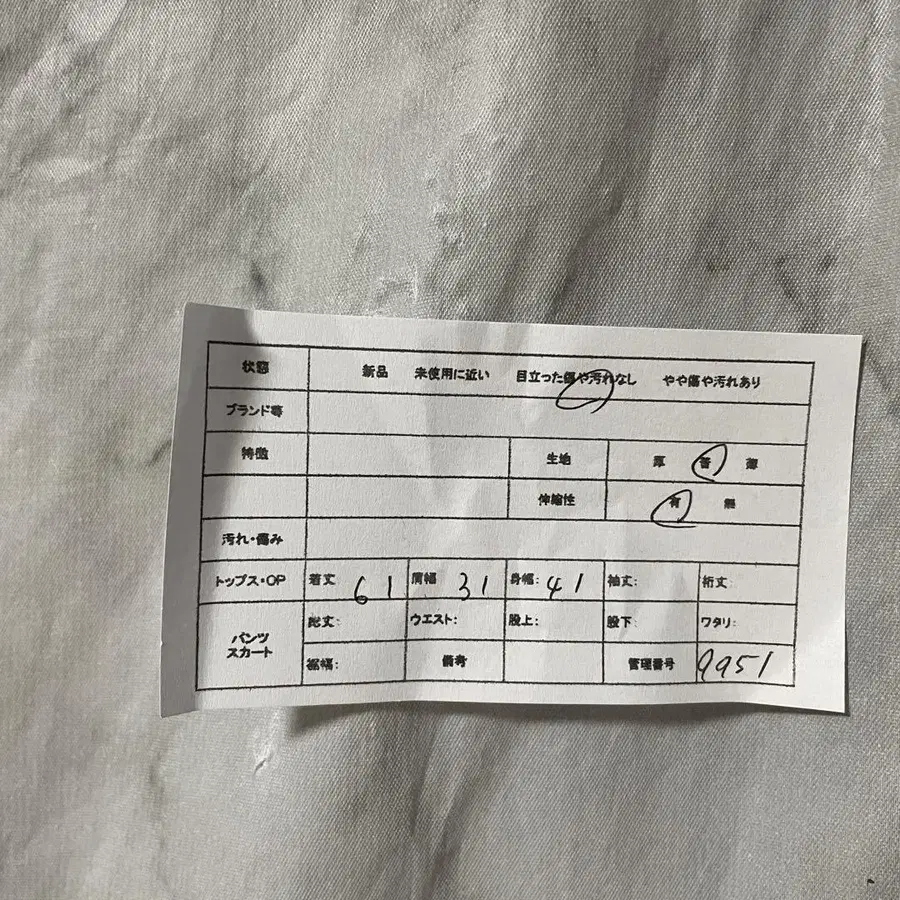 状態 新品 未使用に近い 目立った傷や汚れなし やや傷や汚れあり
ブランド等
特徴 生地 厚 普 薄
伸縮性 有 無
汚れ・傷み
トップス・OP 着丈 61 肩幅 31 身幅: 41 袖丈: 裄丈:
パンツ スカート 総丈: ウエスト: 股上: 股下: ワタリ:
裾幅: 備考 管理番号 9951